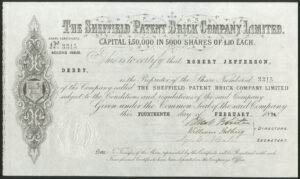 THE SHEFFIELD PATENT BRICK COMPANY LIMITED.
CAPITAL £50,000 IN 5000 SHARES OF £10 EACH.
No 3315
This is to certify that ROBERT JEFFERSON,
DERBY,
is the Proprietor of the Share Numbered 3315
of the Company called THE SHEFFIELD PATENT BRICK COMPANY LIMITED
subject to the Conditions and Regulations of the said Company
Given under the Common Seal of the said Company
this FOURTEENTH day of FEBRUARY,
DIRECTORS.
SECRETARY.